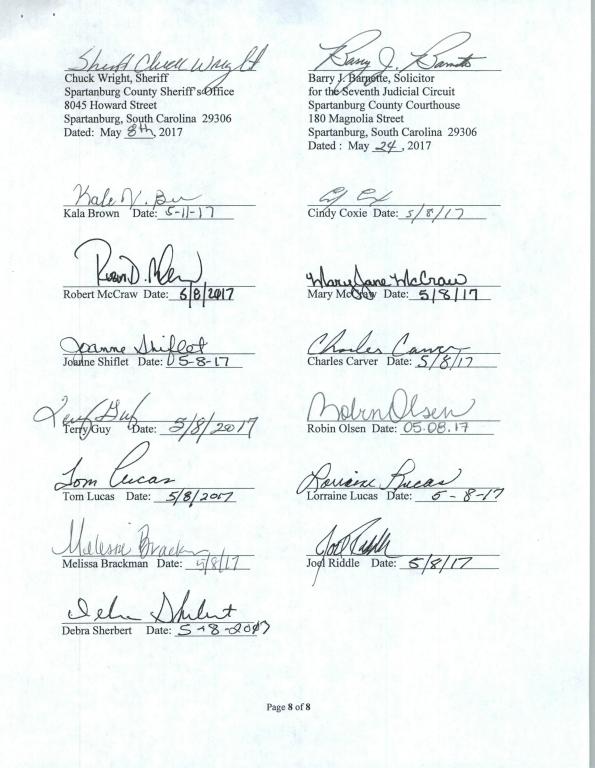 Sheriff Chuck Wright
Chuck Wright, Sheriff
Spartanburg County Sheriff's Office
8045 Howard Street
Spartanburg, South Carolina 29306
Dated: May 8th, 2017
Barry J. Barnette
Barry J. Barnette, Solicitor
for the Seventh Judicial Circuit
Spartanburg County Courthouse
180 Magnolia Street
Spartanburg, South Carolina 29306
Dated : May 24, 2017
Kala Brown Date: 5-11-17
Cindy Coxie Date: 5/8/17
Robert McCraw Date: 5/8/2017
Mary Jane McCraw
Mary McCraw Date: 5/8/17
Joanne Shiflet
Joanne Shiflet Date: 5-8-17
Charles Carver
Charles Carver Date: 5/8/17
Terry Guy
Terry Guy Date: 5/8/2017
Robin Olsen
Robin Olsen Date: 05.08.17
Tom Lucas
Tom Lucas Date: 5/8/2017
Lorraine Lucas
Lorraine Lucas Date: 5-8-17
Melissa Brackman
Melissa Brackman Date: 5/8/17
Joel Riddle
Joel Riddle Date: 5/8/17
Debra Sherbert
Debra Sherbert Date: 5-8-2017
Page 8 of 8